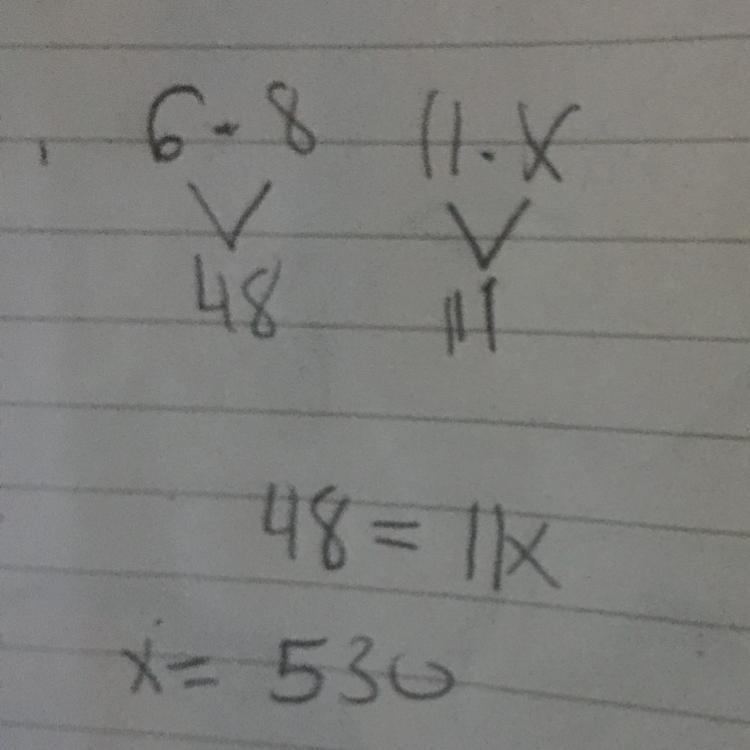 6 · 8 11 · X
48 111
48 = 11x
x = 530